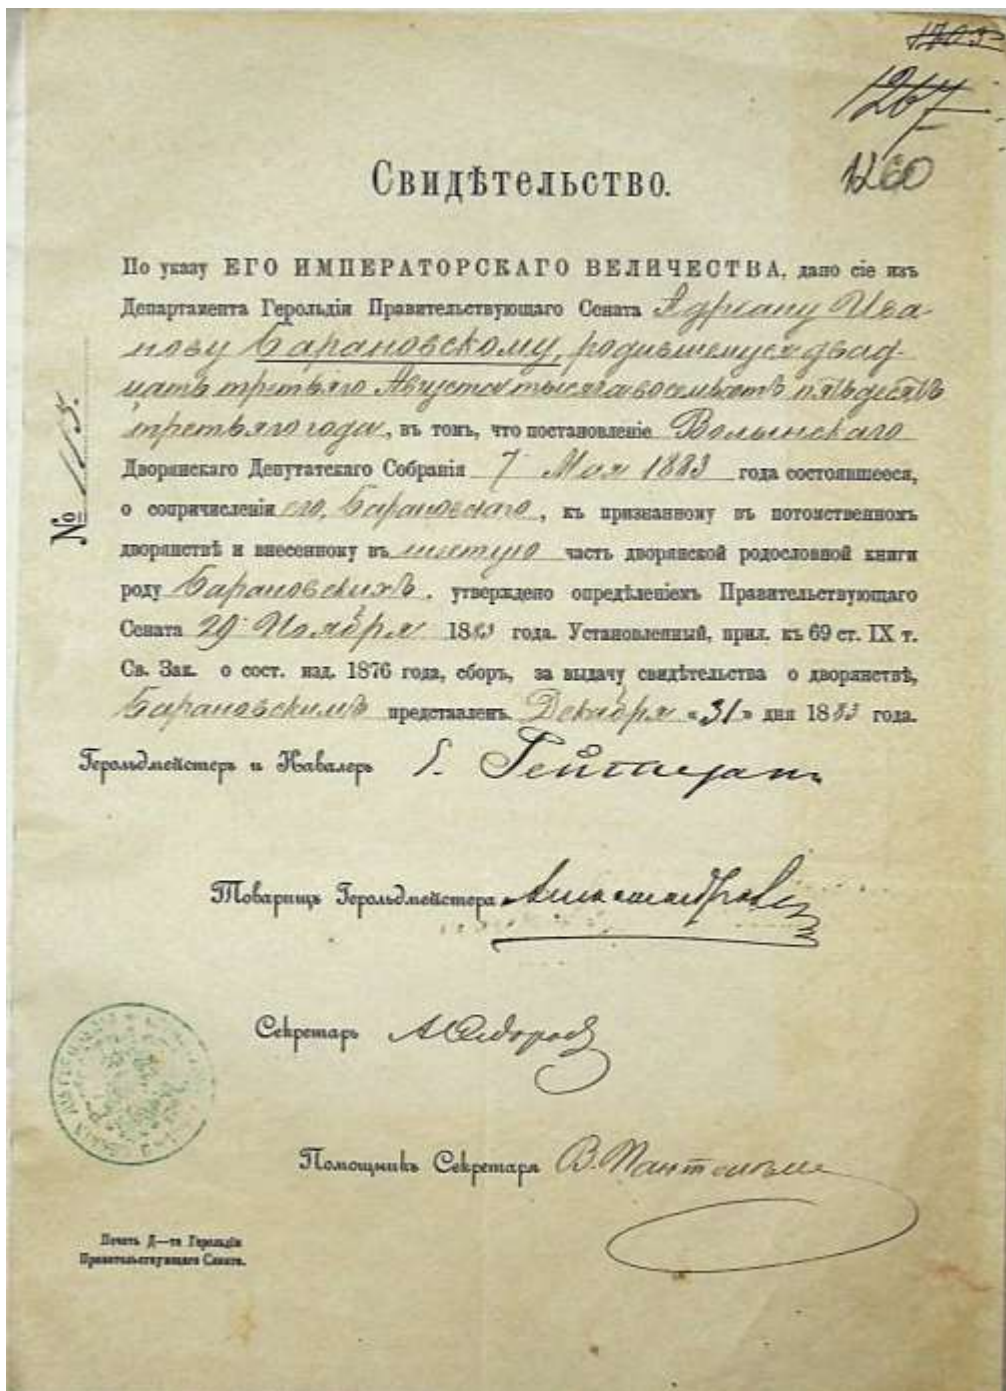 1267
1260
Свидѣтельство.
По указу ЕГО ИМПЕРАТОРСКАГО ВЕЛИЧЕСТВА, дано сіе изъ
Департамента Герольдіи Правительствующаго Сената Адріану Ива-
нову Барановскому, родившемуся двад-
цать третьяго Августа тысяча восемьсотъ пятьдесятъ
третьяго года, въ томъ, что постановленіе Волынскаго
Дворянскаго Депутатскаго Собранія 7 Мая 1883 года состоявшееся,
о сопричисленіи его, Барановскаго, къ признанному въ потомственномъ
дворянствѣ и внесенному въ шестую часть дворянской родословной книги
роду Барановскихъ, утверждено опредѣленіемъ Правительствующаго
Сената 29 Ноября 1883 года. Установленный, прил. къ 69 ст. IX т.
Св. Зак. о сост. изд. 1876 года, сборъ, за выдачу свидѣтельства о дворянствѣ,
Барановскимъ представленъ. Декабря «31» дня 1883 года.
№ 1115.
Герольдмейстеръ и Кавалеръ
Товарищъ Герольдмейстера
Секретарь
Помощникъ Секретаря В.
Печать Д—та Герольдіи
Правительствующаго Сената.